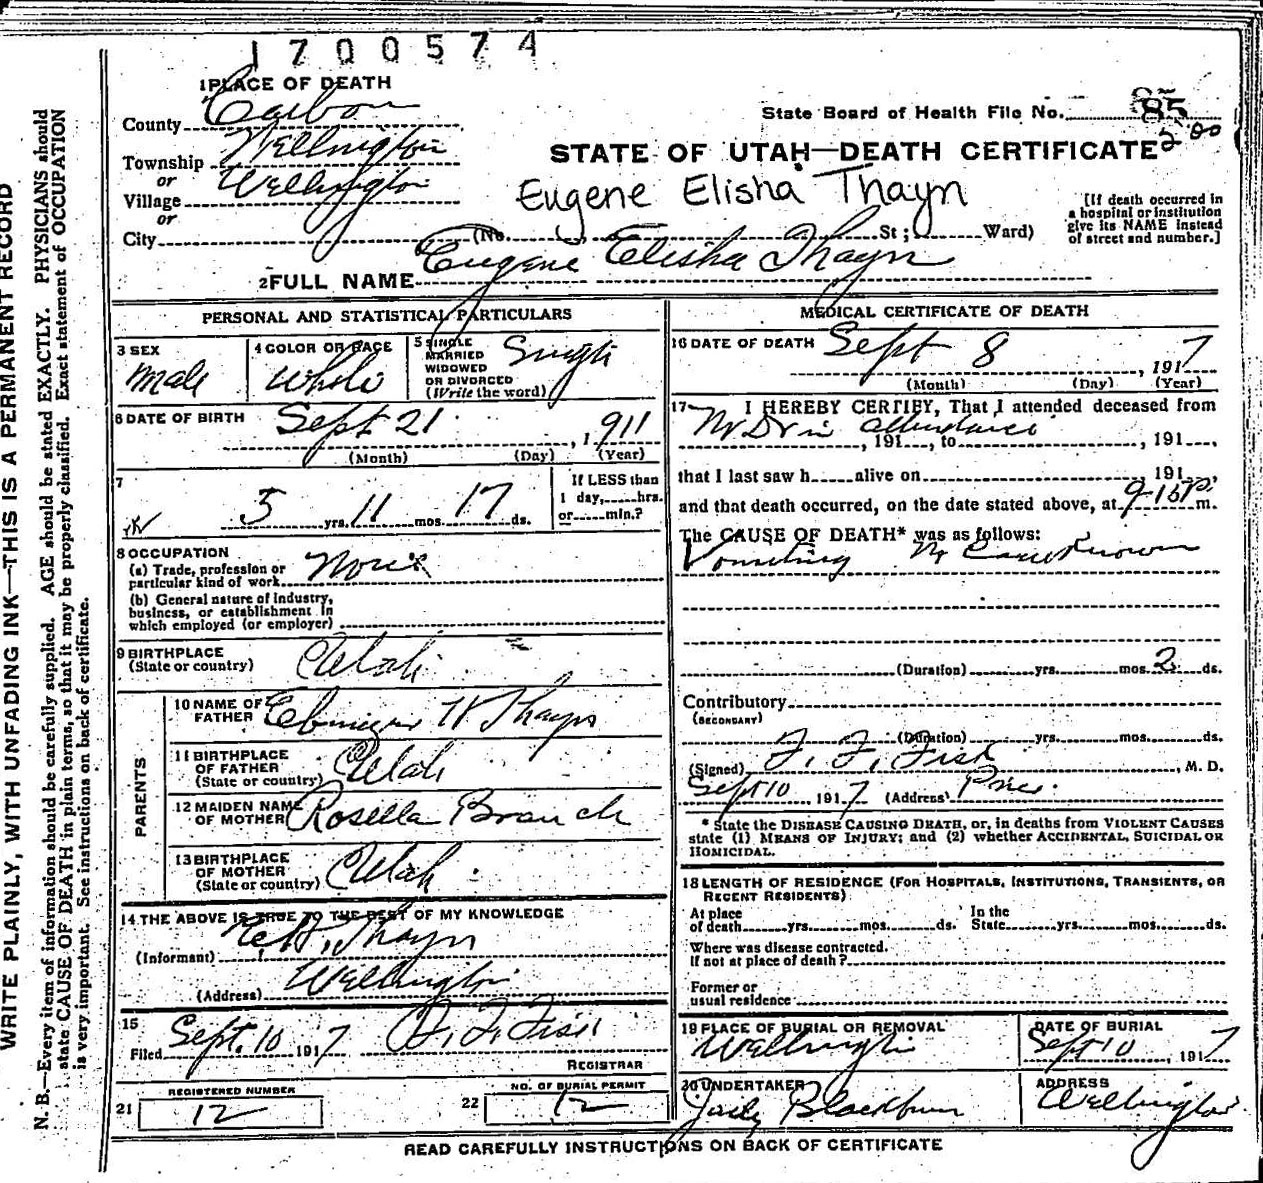 1700574
1 PLACE OF DEATH
County Carbon
State Board of Health File No. 85
Township Wellington
or
STATE OF UTAH—DEATH CERTIFICATE
Village Wellington
or
Eugene Elisha Thayn
[If death occurred in
a hospital or institution
give its NAME instead
of street and number.]
City (No. St; Ward)
2 FULL NAME Eugene Elisha Thayn
PERSONAL AND STATISTICAL PARTICULARS
3 SEX
Male
4 COLOR OR RACE
White
5 SINGLE
MARRIED
WIDOWED
OR DIVORCED
(Write the word)
Single
6 DATE OF BIRTH Sept 21, 1911
(Month) (Day) (Year)
7
5 yrs. 11 mos. 17 ds.
If LESS than
1 day, hrs.
or min.?
8 OCCUPATION
(a) Trade, profession or
particular kind of work None
(b) General nature of industry,
business, or establishment in
which employed (or employer)
9 BIRTHPLACE
(State or country) Utah
PARENTS
10 NAME OF
FATHER Ebenezer W Thayn
11 BIRTHPLACE
OF FATHER
(State or country) Utah
12 MAIDEN NAME
OF MOTHER Rosella Branch
13 BIRTHPLACE
OF MOTHER
(State or country) Utah
14 THE ABOVE IS TRUE TO THE BEST OF MY KNOWLEDGE
(Informant) Thayn
(Address) Wellington
15
Filed Sept. 10 1917 F. F. Fisk
REGISTRAR
21 REGISTERED NUMBER
12
22 NO. OF BURIAL PERMIT
12
MEDICAL CERTIFICATE OF DEATH
16 DATE OF DEATH Sept 8, 1917
(Month) (Day) (Year)
17 I HEREBY CERTIFY, That I attended deceased from
No Dr in attendance, 191 , to , 191 ,
that I last saw h alive on , 191
and that death occurred, on the date stated above, at 9-15 P. m.
The CAUSE OF DEATH* was as follows:
Vomiting No Cause Known
(Duration) yrs. mos. 2 ds.
Contributory
(SECONDARY)
(Duration) yrs. mos. ds.
(Signed) F. F. Fisk, M. D.
Sept 10 1917 (Address) Price.
* State the DISEASE CAUSING DEATH, or, in deaths from VIOLENT CAUSES
state (1) MEANS OF INJURY; and (2) whether ACCIDENTAL, SUICIDAL OR
HOMICIDAL.
18 LENGTH OF RESIDENCE (FOR HOSPITALS, INSTITUTIONS, TRANSIENTS, OR
RECENT RESIDENTS)
At place
of death yrs. mos. ds.
In the
State yrs. mos. ds.
Where was disease contracted.
If not at place of death?
Former or
usual residence
19 PLACE OF BURIAL OR REMOVAL
Wellington
DATE OF BURIAL
Sept 10, 1917
20 UNDERTAKER
Blackburn
ADDRESS
Wellington
READ CAREFULLY INSTRUCTIONS ON BACK OF CERTIFICATE
WRITE PLAINLY, WITH UNFADING INK—THIS IS A PERMANENT RECORD
N. B.—Every item of information should be carefully supplied. AGE should be stated EXACTLY. PHYSICIANS should
state CAUSE OF DEATH in plain terms, so that it may be properly classified. Exact statement of OCCUPATION
is very important. See instructions on back of certificate.